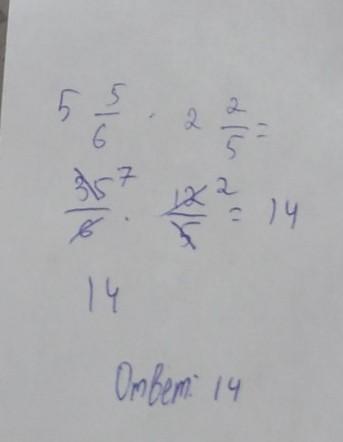 5 5/6 · 2 2/5 =
35 7/6 · 12 2/5 = 14
14
Ответ: 14